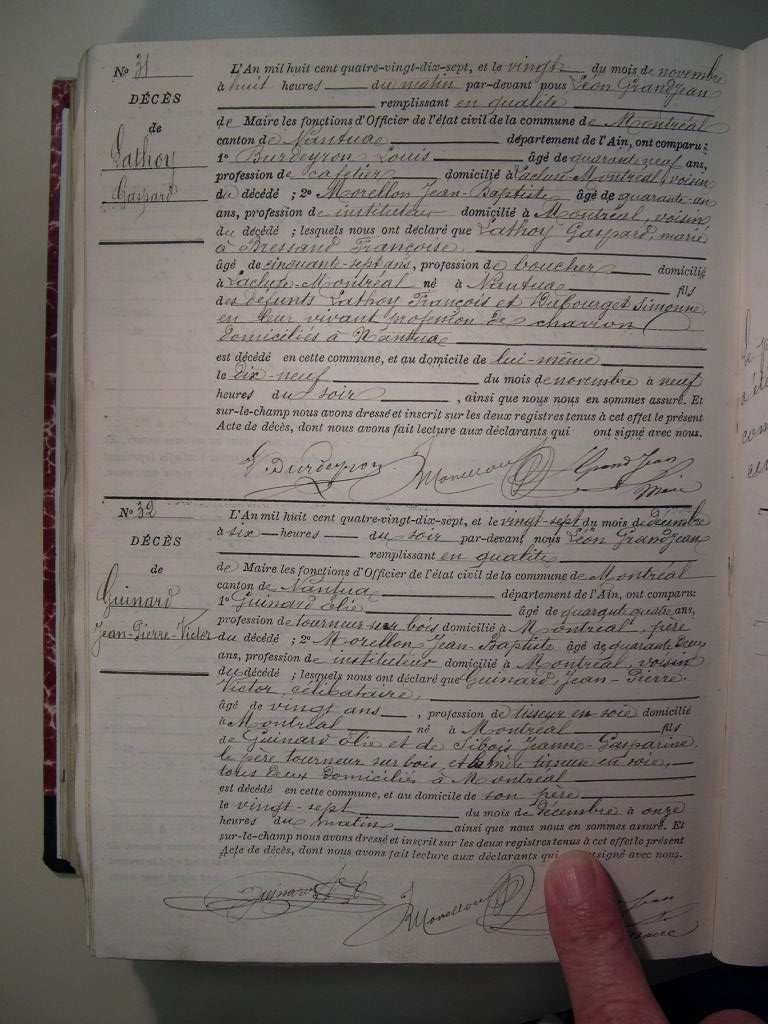 No 31
DÉCÈS
de
Lathoy
Gaspard
L'An mil huit cent quatre-vingt-dix-sept, et le vingt du mois de novembre
à huit heures du matin par-devant nous Léon Grandjean
remplissant en qualité
de Maire les fonctions d'Officier de l'état civil de la commune de Montréal
canton de Nantua département de l'Ain, ont comparu:
1º Burdeyron Louis âgé de quarante neuf ans,
profession de cafetier domicilié à Lacluse Montréal, voisin
du décédé ; 2º Morellon Jean-Baptiste âgé de quarante-un
ans, profession de instituteur domicilié à Montréal, voisin
du décédé ; lesquels nous ont déclaré que Lathoy Gaspard, marié
à Bressand Françoise,
âgé de cinquante-sept ans, profession de boucher domicilié
à Lacluse-Montréal né à Nantua fils
des défunts Lathoy François et Dubourget Simonne,
en leur vivant profession de charron
domiciliés à Nantua
est décédé en cette commune, et au domicile de lui-même
le dix-neuf du mois de novembre à neuf
heures du soir , ainsi que nous nous en sommes assuré. Et
sur-le-champ nous avons dressé et inscrit sur les deux registres tenus à cet effet le présent
Acte de décès, dont nous avons fait lecture aux déclarants qui ont signé avec nous.
Burdeyron Morellon Grandjean
Maire
No 32
DÉCÈS
de
Guinard
Jean-Pierre-Victor
L'An mil huit cent quatre-vingt-dix-sept, et le vingt-sept du mois de décembre
à six heures du soir par-devant nous Léon Grandjean
remplissant en qualité
de Maire les fonctions d'Officier de l'état civil de la commune de Montréal
canton de Nantua département de l'Ain, ont comparu:
1º Guinard Élie âgé de quarante quatre ans,
profession de tourneur sur bois domicilié à Montréal, père
du décédé ; 2º Morellon Jean-Baptiste âgé de quarante deux
ans, profession de instituteur domicilié à Montréal, voisin
du décédé ; lesquels nous ont déclaré que Guinard, Jean-Pierre
Victor, célibataire,
âgé de vingt ans , profession de tisseur en soie domicilié
à Montréal né à Montréal fils
de Guinard Élie et de Sibois Jeanne-Gasparine
le père tourneur sur bois, et la mère tisseuse en soie,
tous deux domiciliés à Montréal
est décédé en cette commune, et au domicile de son père
le vingt-sept du mois de décembre à onze
heures du matin ainsi que nous nous en sommes assuré. Et
sur-le-champ nous avons dressé et inscrit sur les deux registres tenus à cet effet le présent
Acte de décès, dont nous avons fait lecture aux déclarants qui signé avec nous.
Guinard Morellon